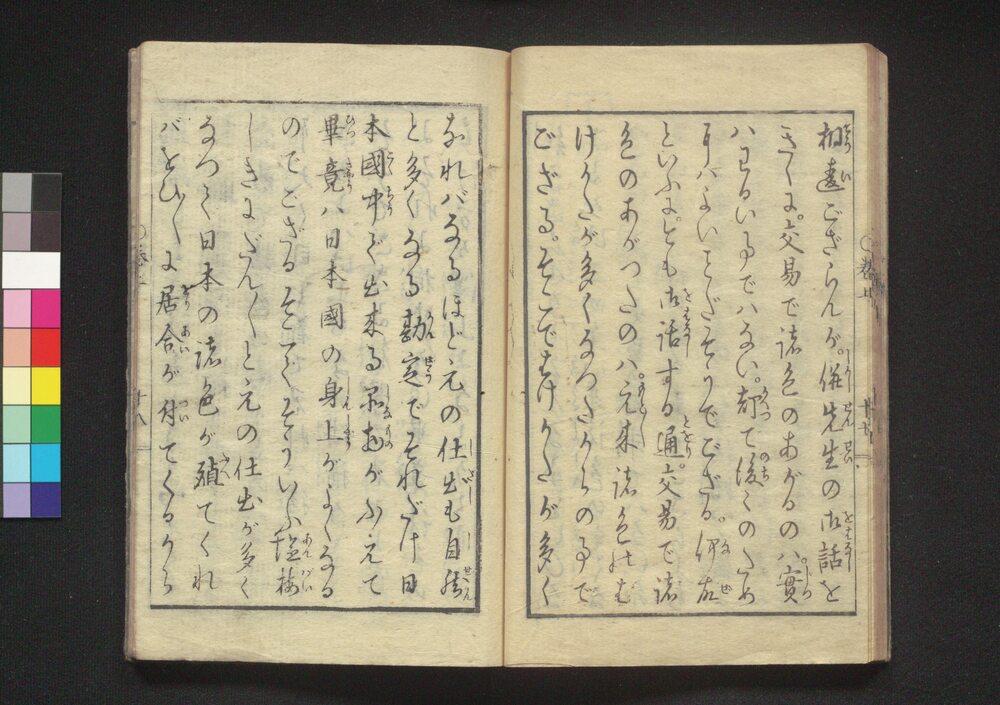 相違ござらんが。併先生の御話を
きくに。交易で諸色のあがるのハ。實
ハわるい事でハない。却て後々のため
にハよいことだそうでござる。何故
といふに。御話する通。交易で諸
色のあがつたのハ。元来諸色のは
けかたが多くなつたからの事で
ござる。そこではけかたが多く
なれバなるほど元の仕出も自然
と多くなる勘定でそれだけ日
本國中で出来る品物がふえて
畢竟ハ日本國の身上がよくなる
のでござるそこでそういふ塩梅
しきにだん〳〵と元の仕出が多く
なつて日本の諸色が殖てくれ
バをひ〳〵に居合が付てくるから